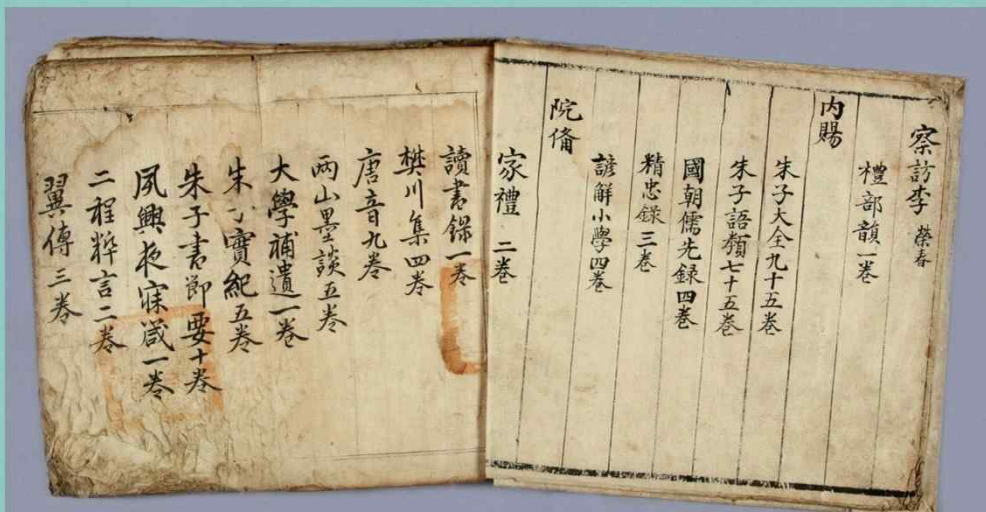 察訪李 榮春
禮部韻一巻
内賜
朱子大全九十五巻
朱子語類七十五巻
國朝儒先録四巻
精忠錄三巻
諺解小學四巻
院俻
家禮 二巻
讀書録一巻
樊川集四巻
唐音九巻
兩山墨談五巻
大學補遺一巻
朱子實紀五巻
朱子書節要十巻
夙興夜寐箴一巻
二程粹言二巻
翼傳三巻